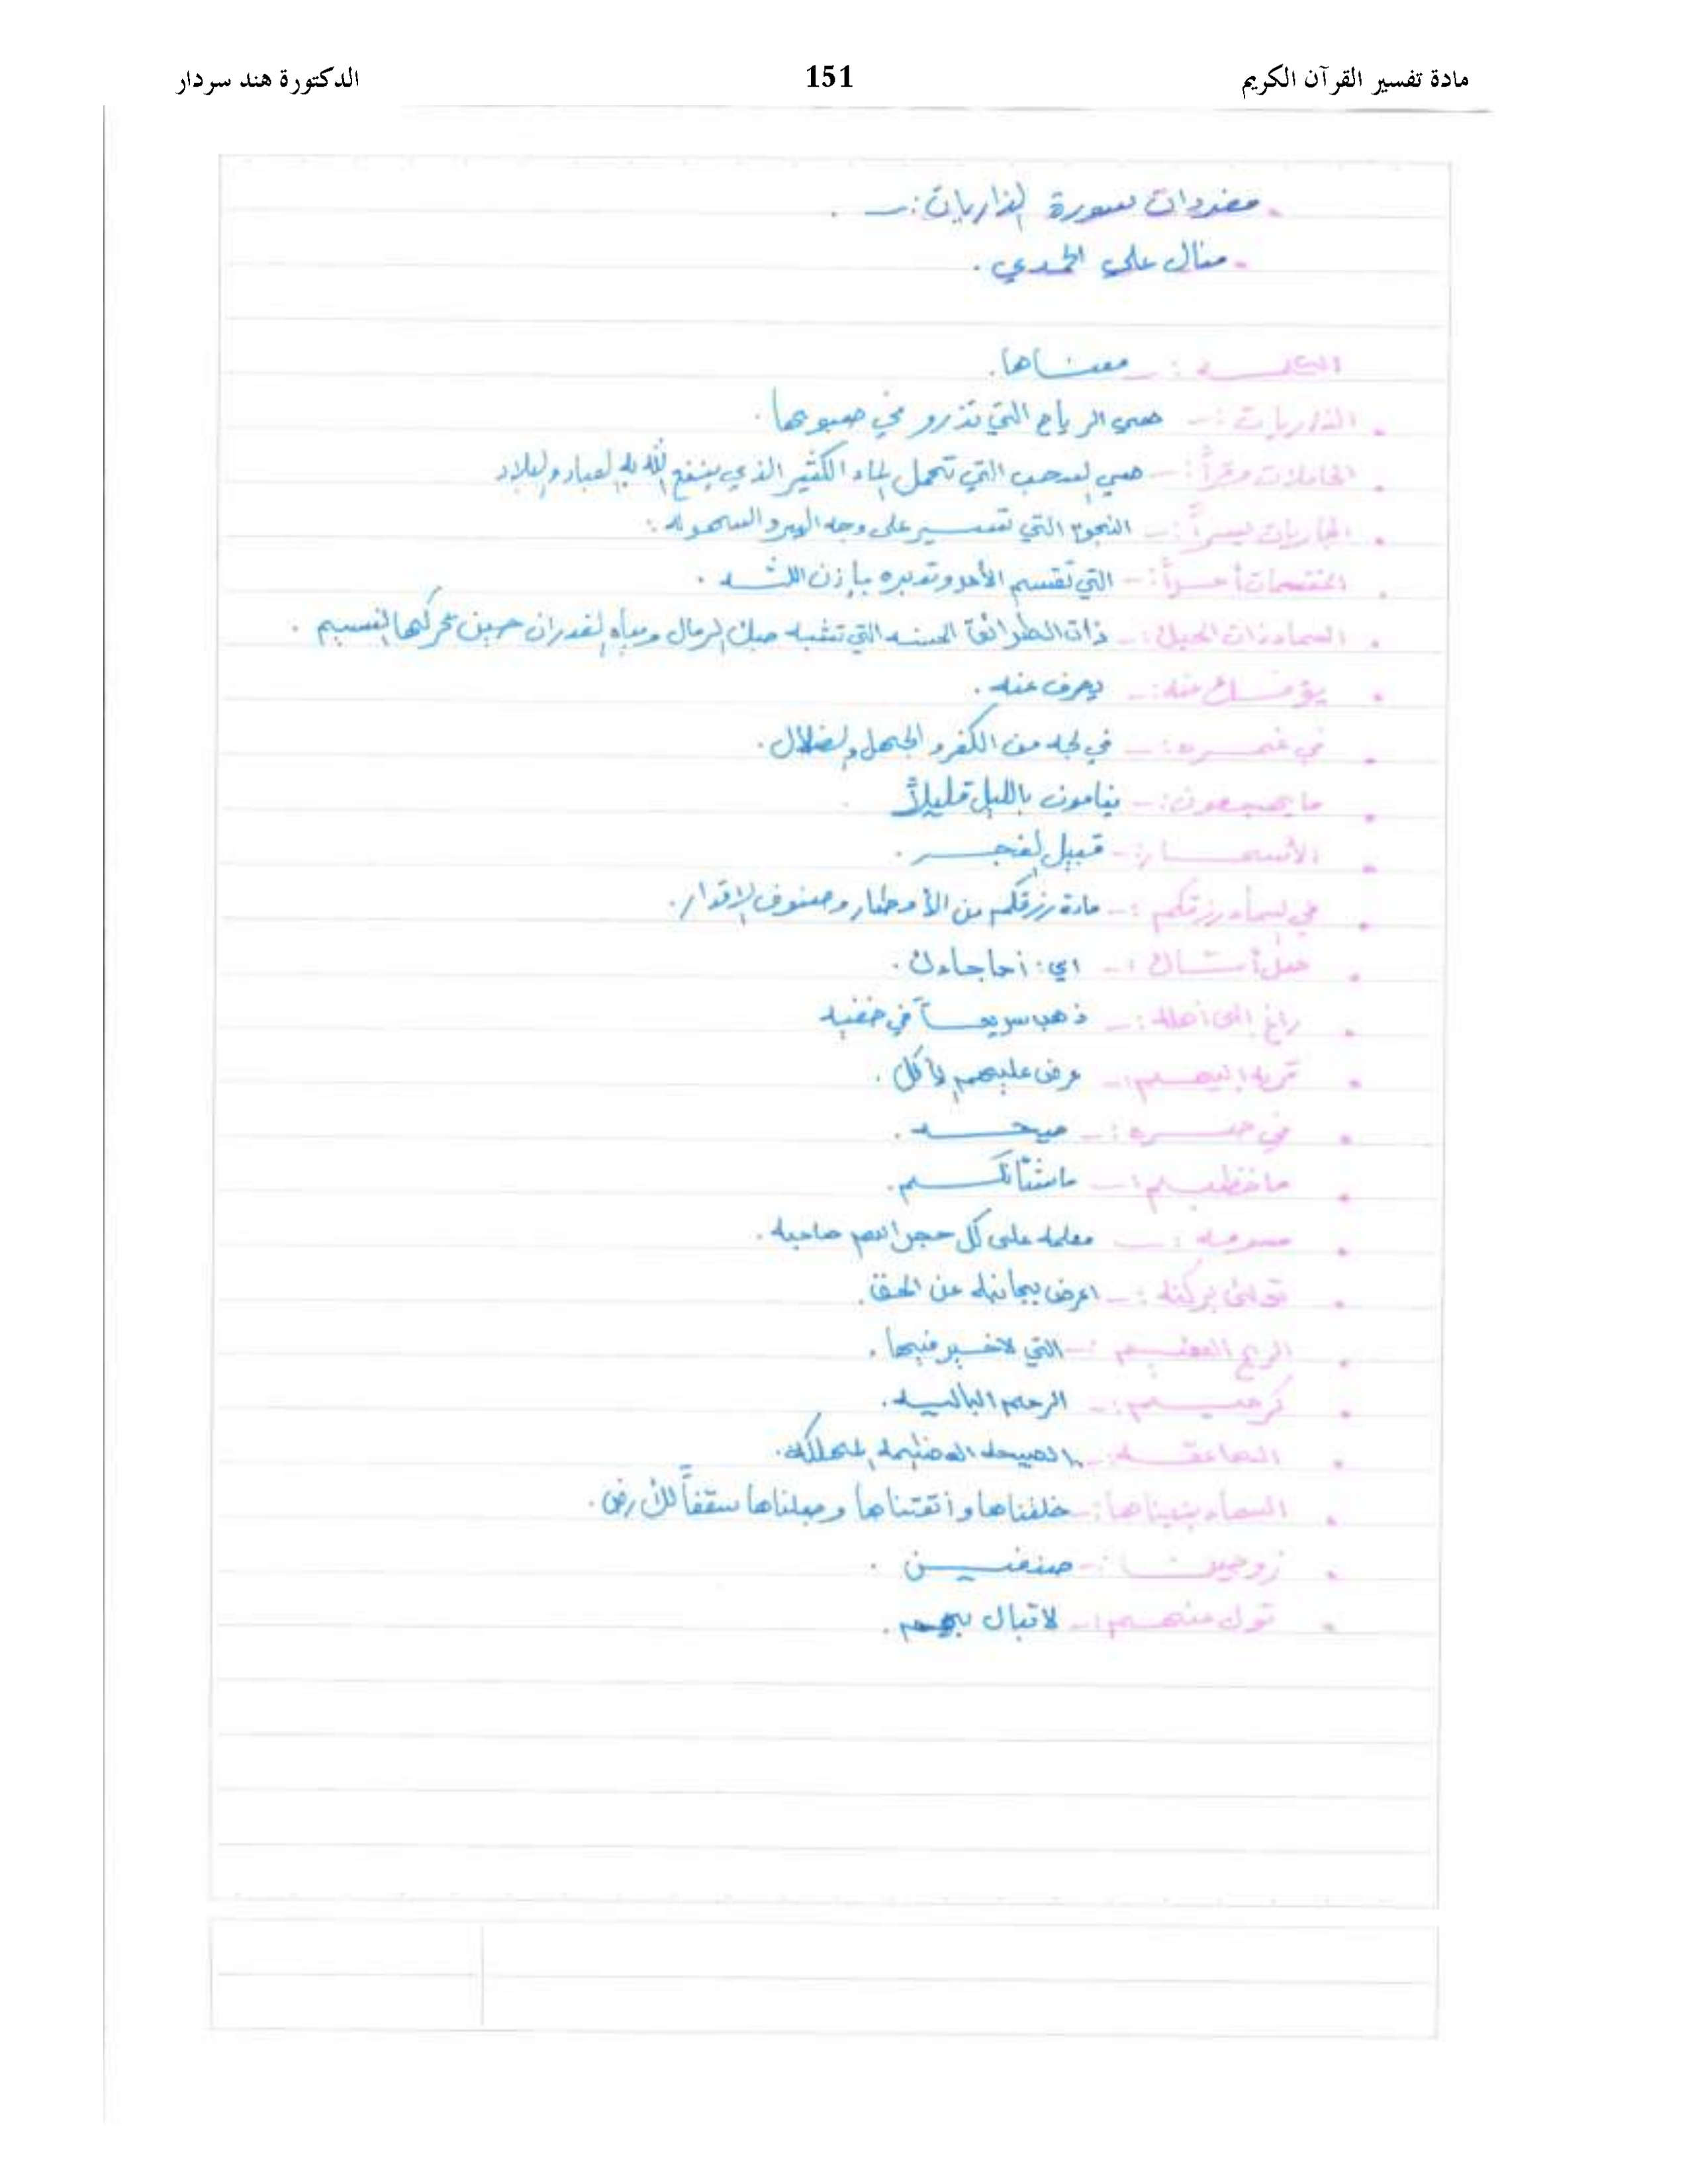 مادة تفسير القرآن الكريم 151 الدكتورة هند سردار
مفردات سورة الذاريات :ـ .
منال علي الحمدي .
الكلمة :ـ معناها.
الذاريات :ـ هي الرياح التي تذرو في هبوبها.
الحاملات وقراً :ـ هي السحب التي تحمل الماء الكثير الذي ينفع الله به العباد والبلاد
الجاريات يسراً :ـ النجوم التي تسير على وجه اليسر والسهوله .
المقسمات أمراً :ـ التي تقسم الأمر وتدبره بإذن الله .
السماء ذات الحبك :ـ ذات الطرائق الحسنه التي تشبه حبك الرمال ومياه الغدران حين يحركها النسيم .
يؤفك عنه :ـ يصرف عنه .
في غمره :ـ في لجه من الكفر والجهل والضلال .
ما يهجعون :ـ ينامون بالليل قليلاً
الأسحار :ـ قبيل الفجر .
في السماء رزقكم :ـ مادة رزقكم من الأمطار وصنوف الاقدار .
هل أتاك :ـ اي : أما جاءك .
راغ إلى أهله :ـ ذهب سريعاً في خفيه
قربه إليهم :ـ عرض عليهم الأكل .
في صره :ـ صيحه .
ما خطبكم :ـ ما شأنكم .
مسومه :ـ معلمه على كل حجر اسم صاحبه .
تولى بركنه :ـ اعرض بجانبه عن الحق .
الريح العقيم :ـ التي لا خير فيها .
كرميم :ـ الرمم الباليه .
الصاعقه :ـ الصيحه العظيمه المهلكه .
السماء بنيناها :ـ خلقناها و أتقناها و جعلناها سقفاً للأرض .
زوجين :ـ صنفين .
تول عنهم :ـ لا تبال بهم .